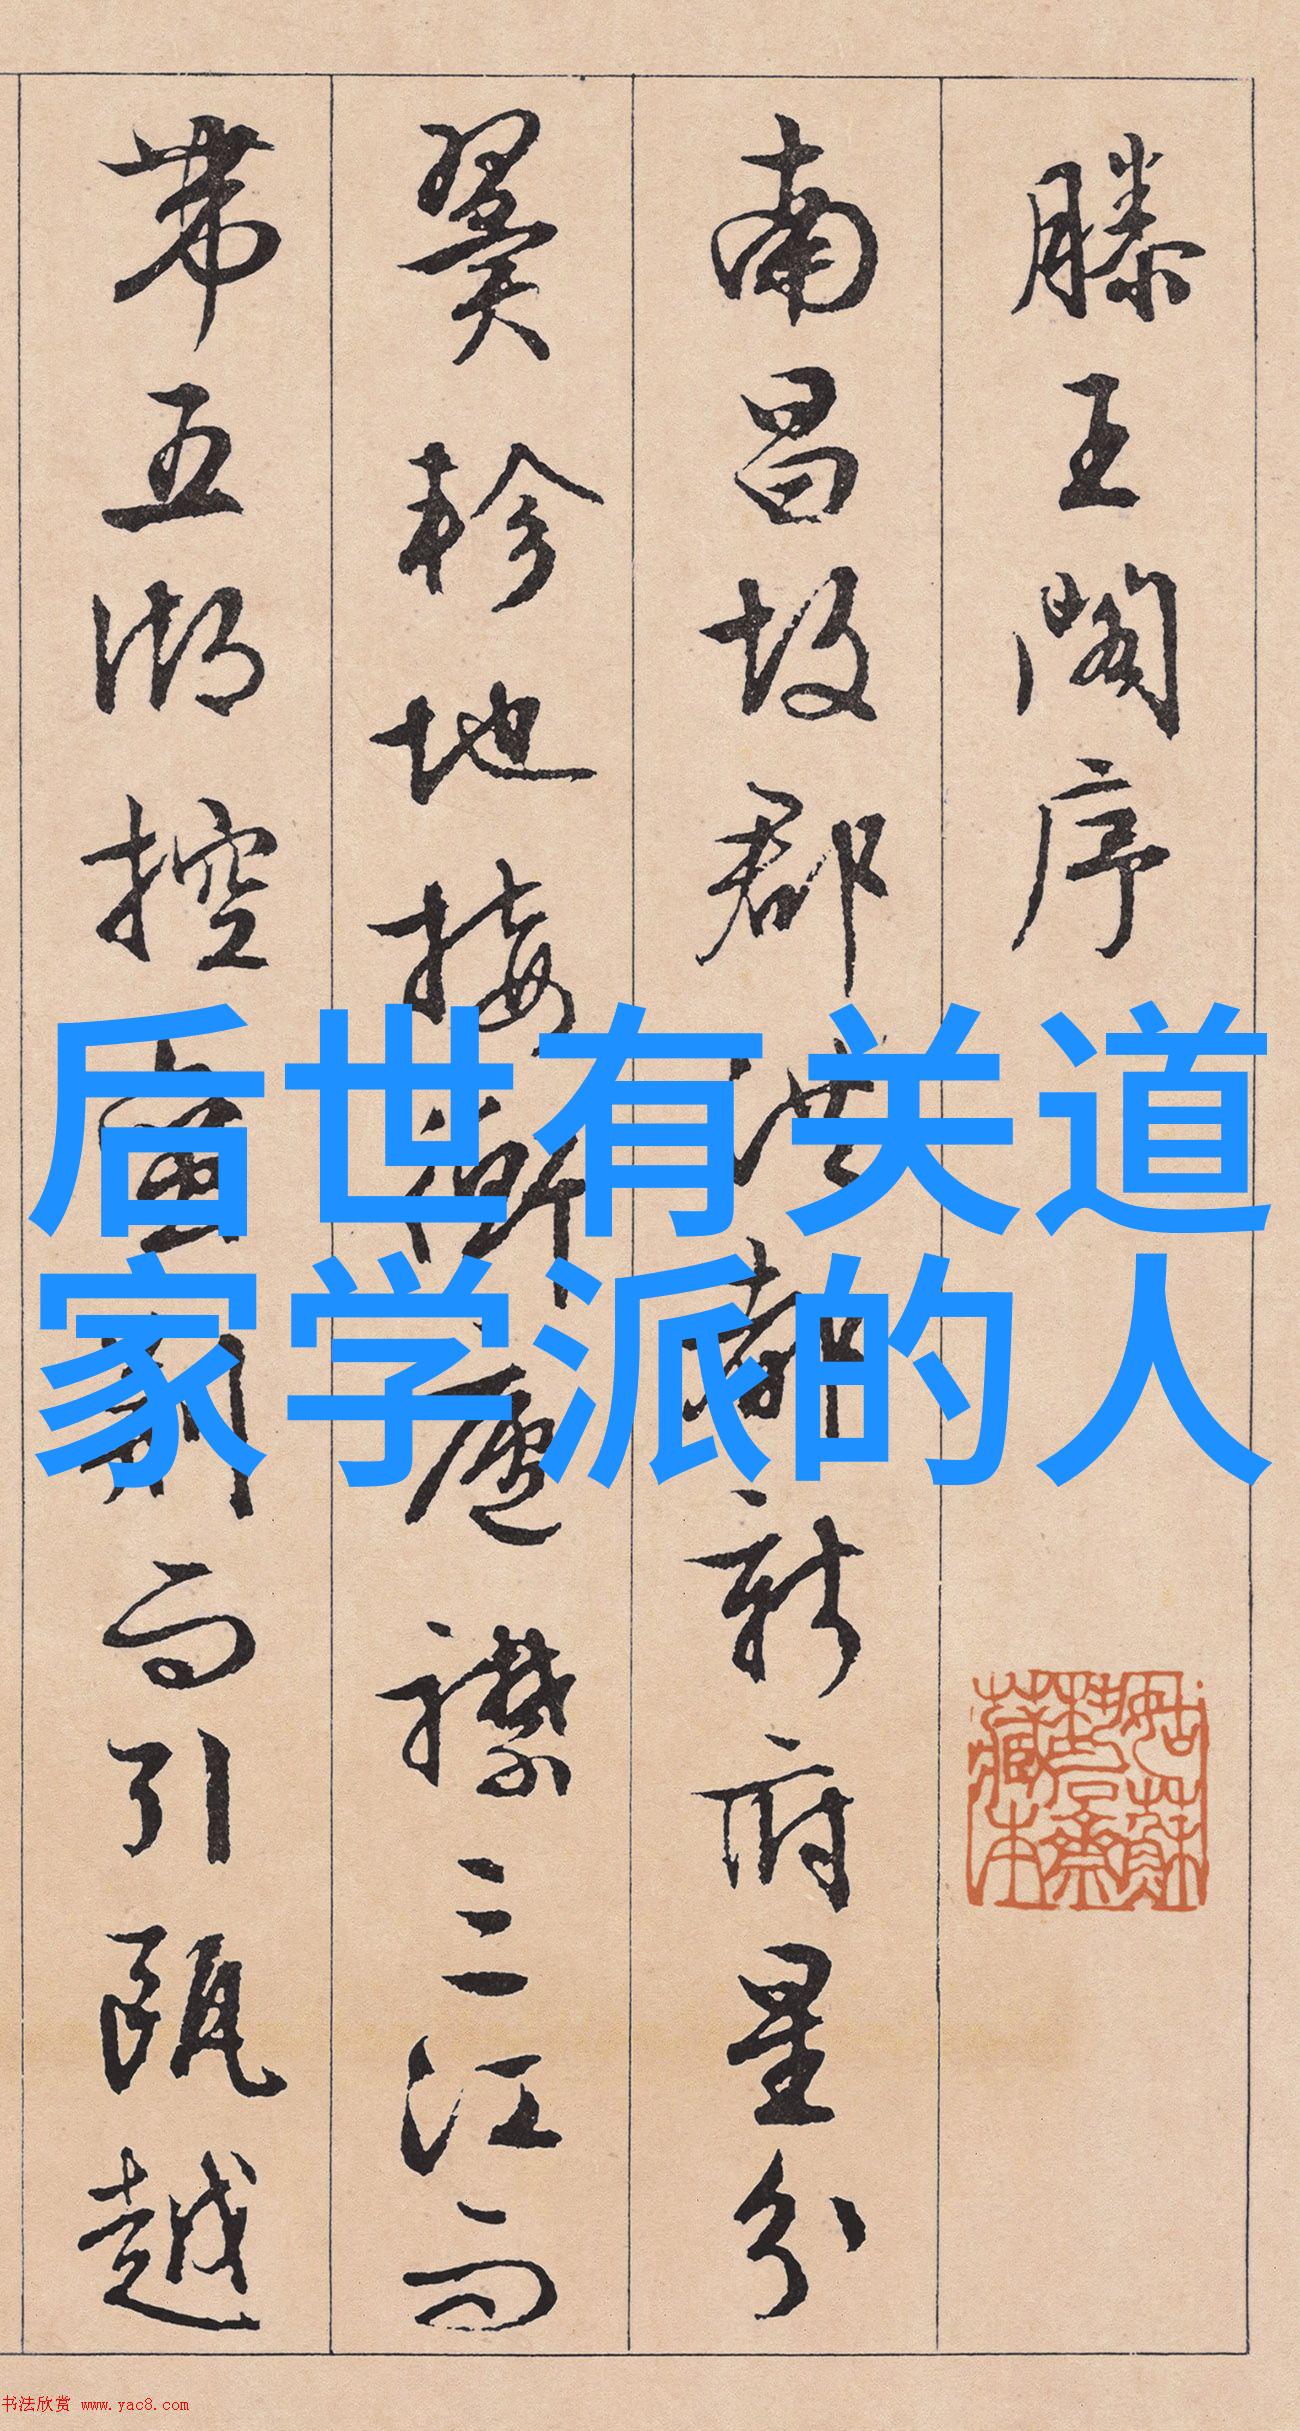 滕王閣序
南昌故郡洪都新府星分
翼軫地接衡廬襟三江而
帶五湖控蠻荊而引甌越
后世有关道
家学派的人
姑蘇
齋
藏本
书法欣赏 www.yac8.com